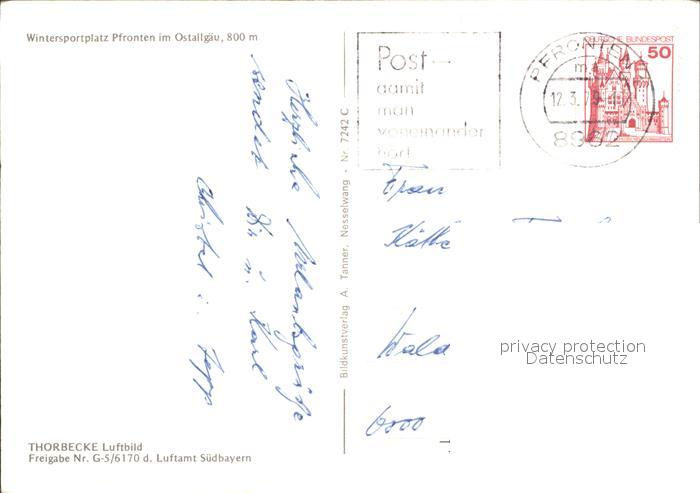 Wintersportplatz Pfronten im Ostallgäu, 800 m
Herzliche Urlaubsgrüße
sendet Dir u. Karl
Christel u. Sepp
THORBECKE Luftbild
Freigabe Nr. G-5/6170 d. Luftamt Südbayern
Bildkunstverlag A. Tanner, Nesselwang - Nr. 7242 C
Post-
damit
man
voneinander
hört
PFRONTEN
12.3.79
8962
DEUTSCHE BUNDESPOST
50
Frau
Käthe
privacy protection
Datenschutz